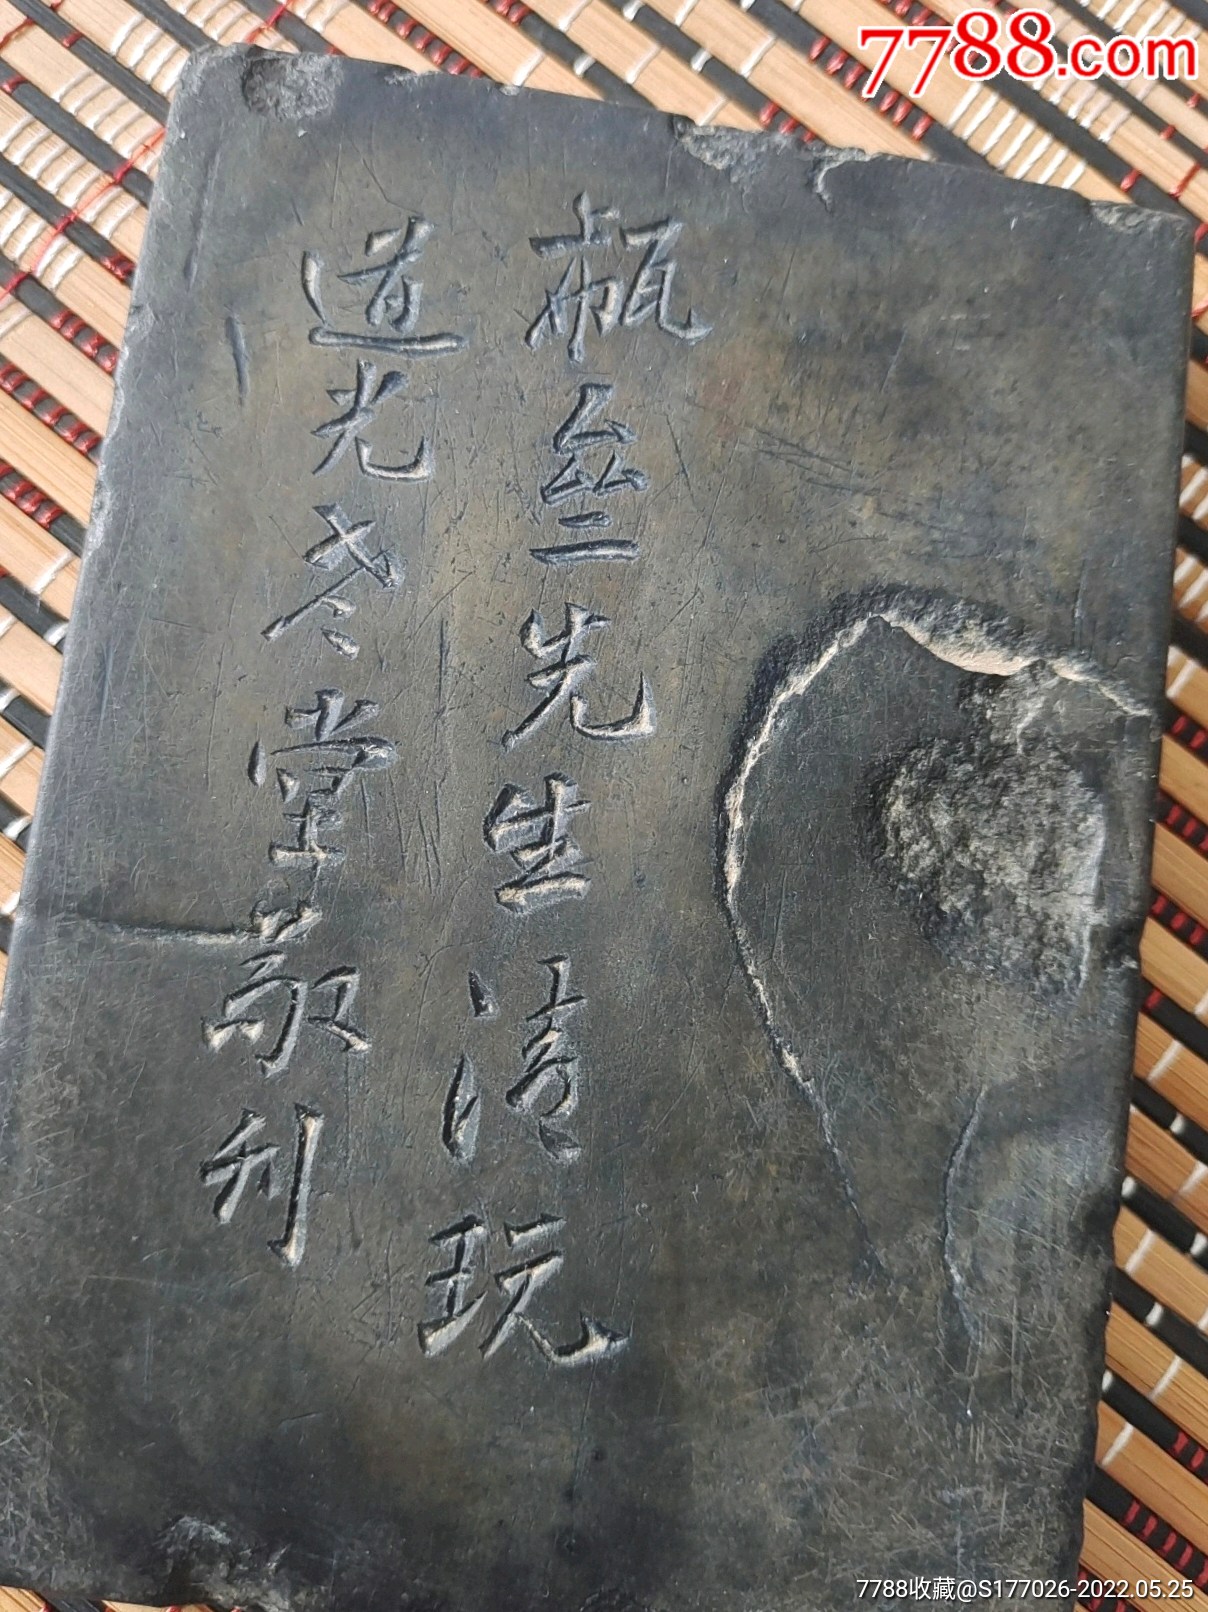 7788.com
瓶亝先生清玩
道光冬堂敬刊
7788收藏@S177026-2022.05.25